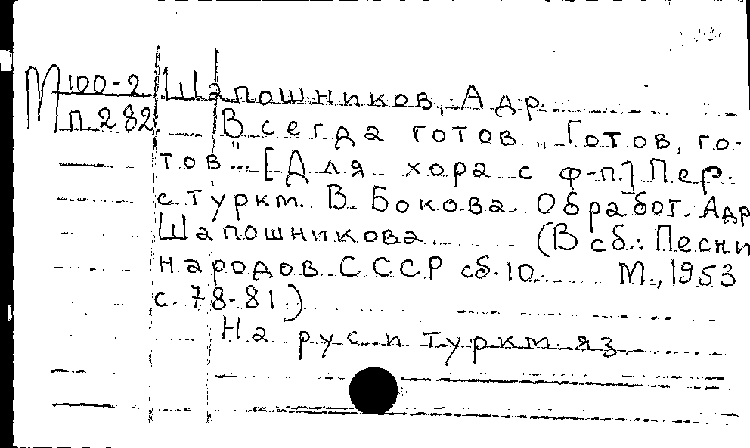 М 100-2 Шапошников, Адр.
п. 282 Всегда готов „Готов, го-
тов". [Для хора с ф-п.] Пер.
с туркм. В. Бокова. Обработ. Адр.
Шапошникова. (В сб.: Песни
народов СССР сб. 10. М., 1953
с. 78-81.)
На рус. и туркм. яз.